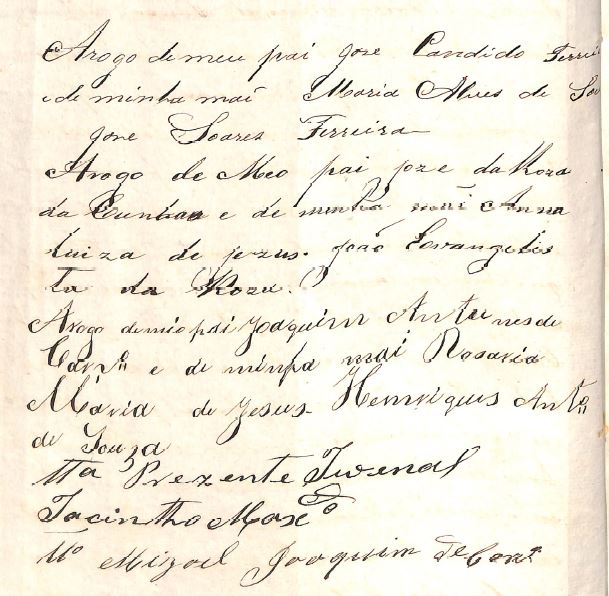 Arogo de meu pai Jose Candido Ferrei
e de minha mai Maria Alves de Sou
Jose Soares Ferreira
Arogo de Meo pai joze da Roza
da Cunhaa e de minha mãi Anna
Luiza de jezus. João Evangelis
ta da Roza.
Arogo de mio pai Joaquim Antunes de
Carvº e de minha mai Rosaria
Maria de Jesus. Henriques Antº
de Souza
Ttª Prezente Juvenal
Jacintho
Mizael Joaquim de